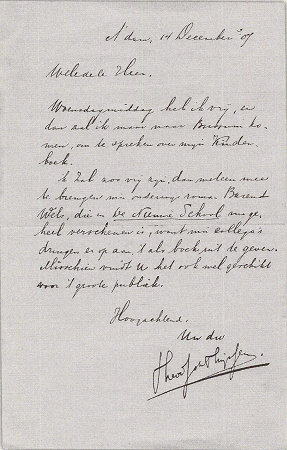 A'dam, 14 December '07
Weledele Heer.
Woensdagmiddag heb ik vrij, en
dan zal ik maar naar Bussum ko-
men, om te spreken over mijn Kinder
boek.
Ik zal zoo vrij zijn, dan meteen mee
te brengen mijn onderwijs roman Barend
Wels, die in De Nieuwe School nu ge-
heel verschenen is; want mijn collega's
dringen er op aan, 't als boek uit te geven.
Misschien vindt U het ook wel geschikt
voor 't groote publiek.
Hoogachtend.
Uw dw
Theo J. Thijssen.